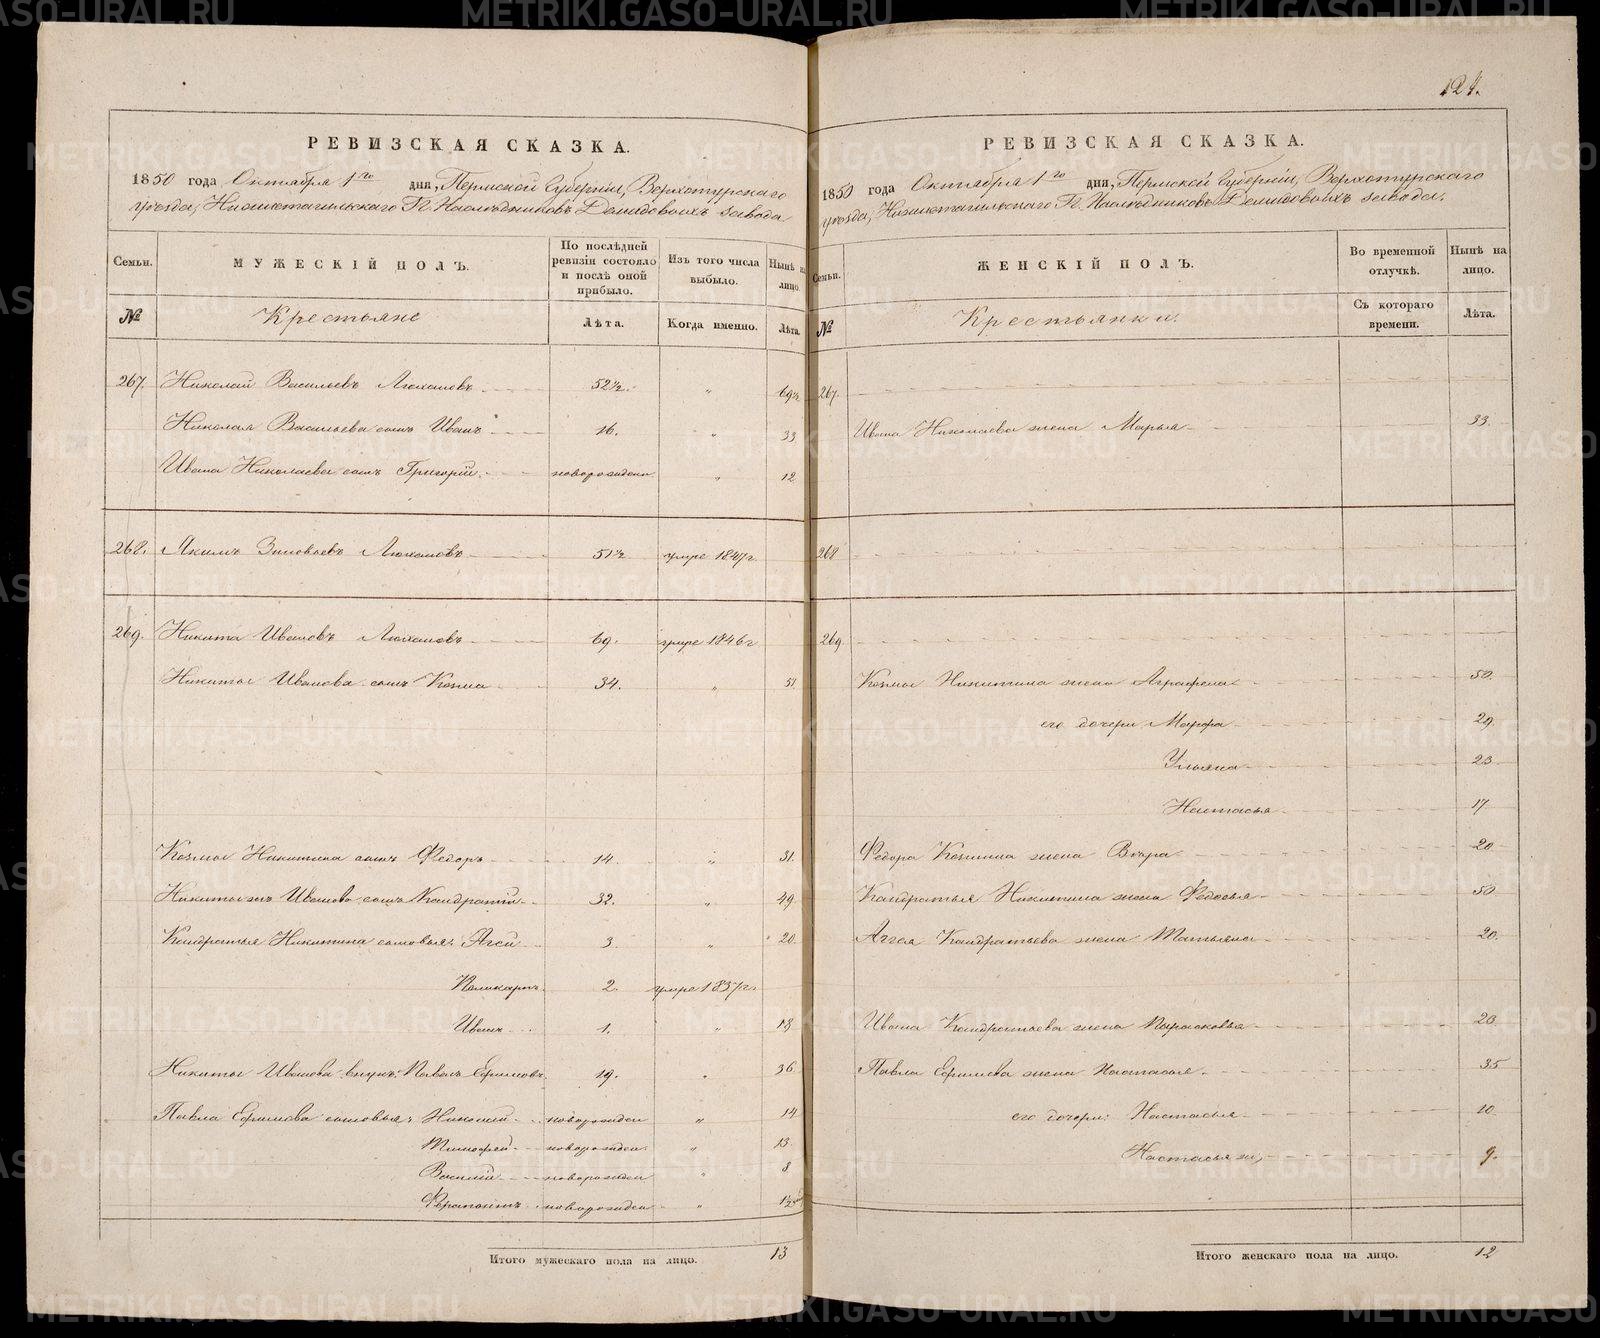 124.
РЕВИЗСКАЯ СКАЗКА.
1850 года Октября 1го дня, Пермской Губернии, Верхотурскаго
уезда, Нижнетагильскаго Гг. Наследниковъ Демидовыхъ завода
Семьи.
МУЖЕСКІЙ ПОЛЪ.
По послѣдней ревизіи состояло и послѣ оной прибыло.
Изъ того числа выбыло.
Нынѣ на лицо.
№
Крестьяне
Лѣта.
Когда именно.
Лѣта.
267. Николай Васильевъ Люхановъ 52½ " 69½
Николая Васильева сынъ Иванъ 16. " 33
Ивана Николаева сынъ Григорій новорожден " 12
268. Якимъ Зиновьевъ Люхановъ 51½ умре 1847 г.
269. Никита Ивановъ Люхановъ 69. умре 1846 г
Никиты Иванова сынъ Козма 34. " 51
Козмы Никитина сынъ Федоръ 14. " 31.
Никиты жъ Иванова сынъ Кандратій 32. " 49
Кандратья Никитина сыновья: Агей 3. " 20
Поликарпъ 2. умре 1837 г.
Иванъ 1. " 18
Никиты Иванова внукъ Павелъ Ефимовъ 19. " 36
Павла Ефимова сыновья: Николай новорожден " 14
Тимофей новорожден " 13
Василій новорожден " 8
Ферапонтъ новорожден " 1½
Итого мужескаго пола на лицо. 13
РЕВИЗСКАЯ СКАЗКА.
1850 года Октября 1го дня, Пермской Губерніи, Верхотурскаго
уезда, Нижнетагильскаго Гг. Наследниковъ Демидовыхъ завода.
Семьи.
ЖЕНСКІЙ ПОЛЪ.
Во временной отлучкѣ.
Нынѣ на лицо.
№
Крестьянки.
Съ котораго времени.
Лѣта.
267.
Ивана Николаева жена Марья 33.
268
269.
Козмы Никитина жена Аграфена 50.
его дочери Марфа 29.
Ульяна 23
Настасья 17
Федора Козмина жена Вѣра 20
Кандратья Никитина жена Федосья 50
Аггея Кандратьева жена Татьяна 20.
Ивана Кандратьева жена Парасковья 20.
Павла Ефимова жена Настасья 35
его дочери: Настасья 10
Настасья ж, 9.
Итого женскаго пола на лицо. 12
METRIKI.GASO-URAL.RU